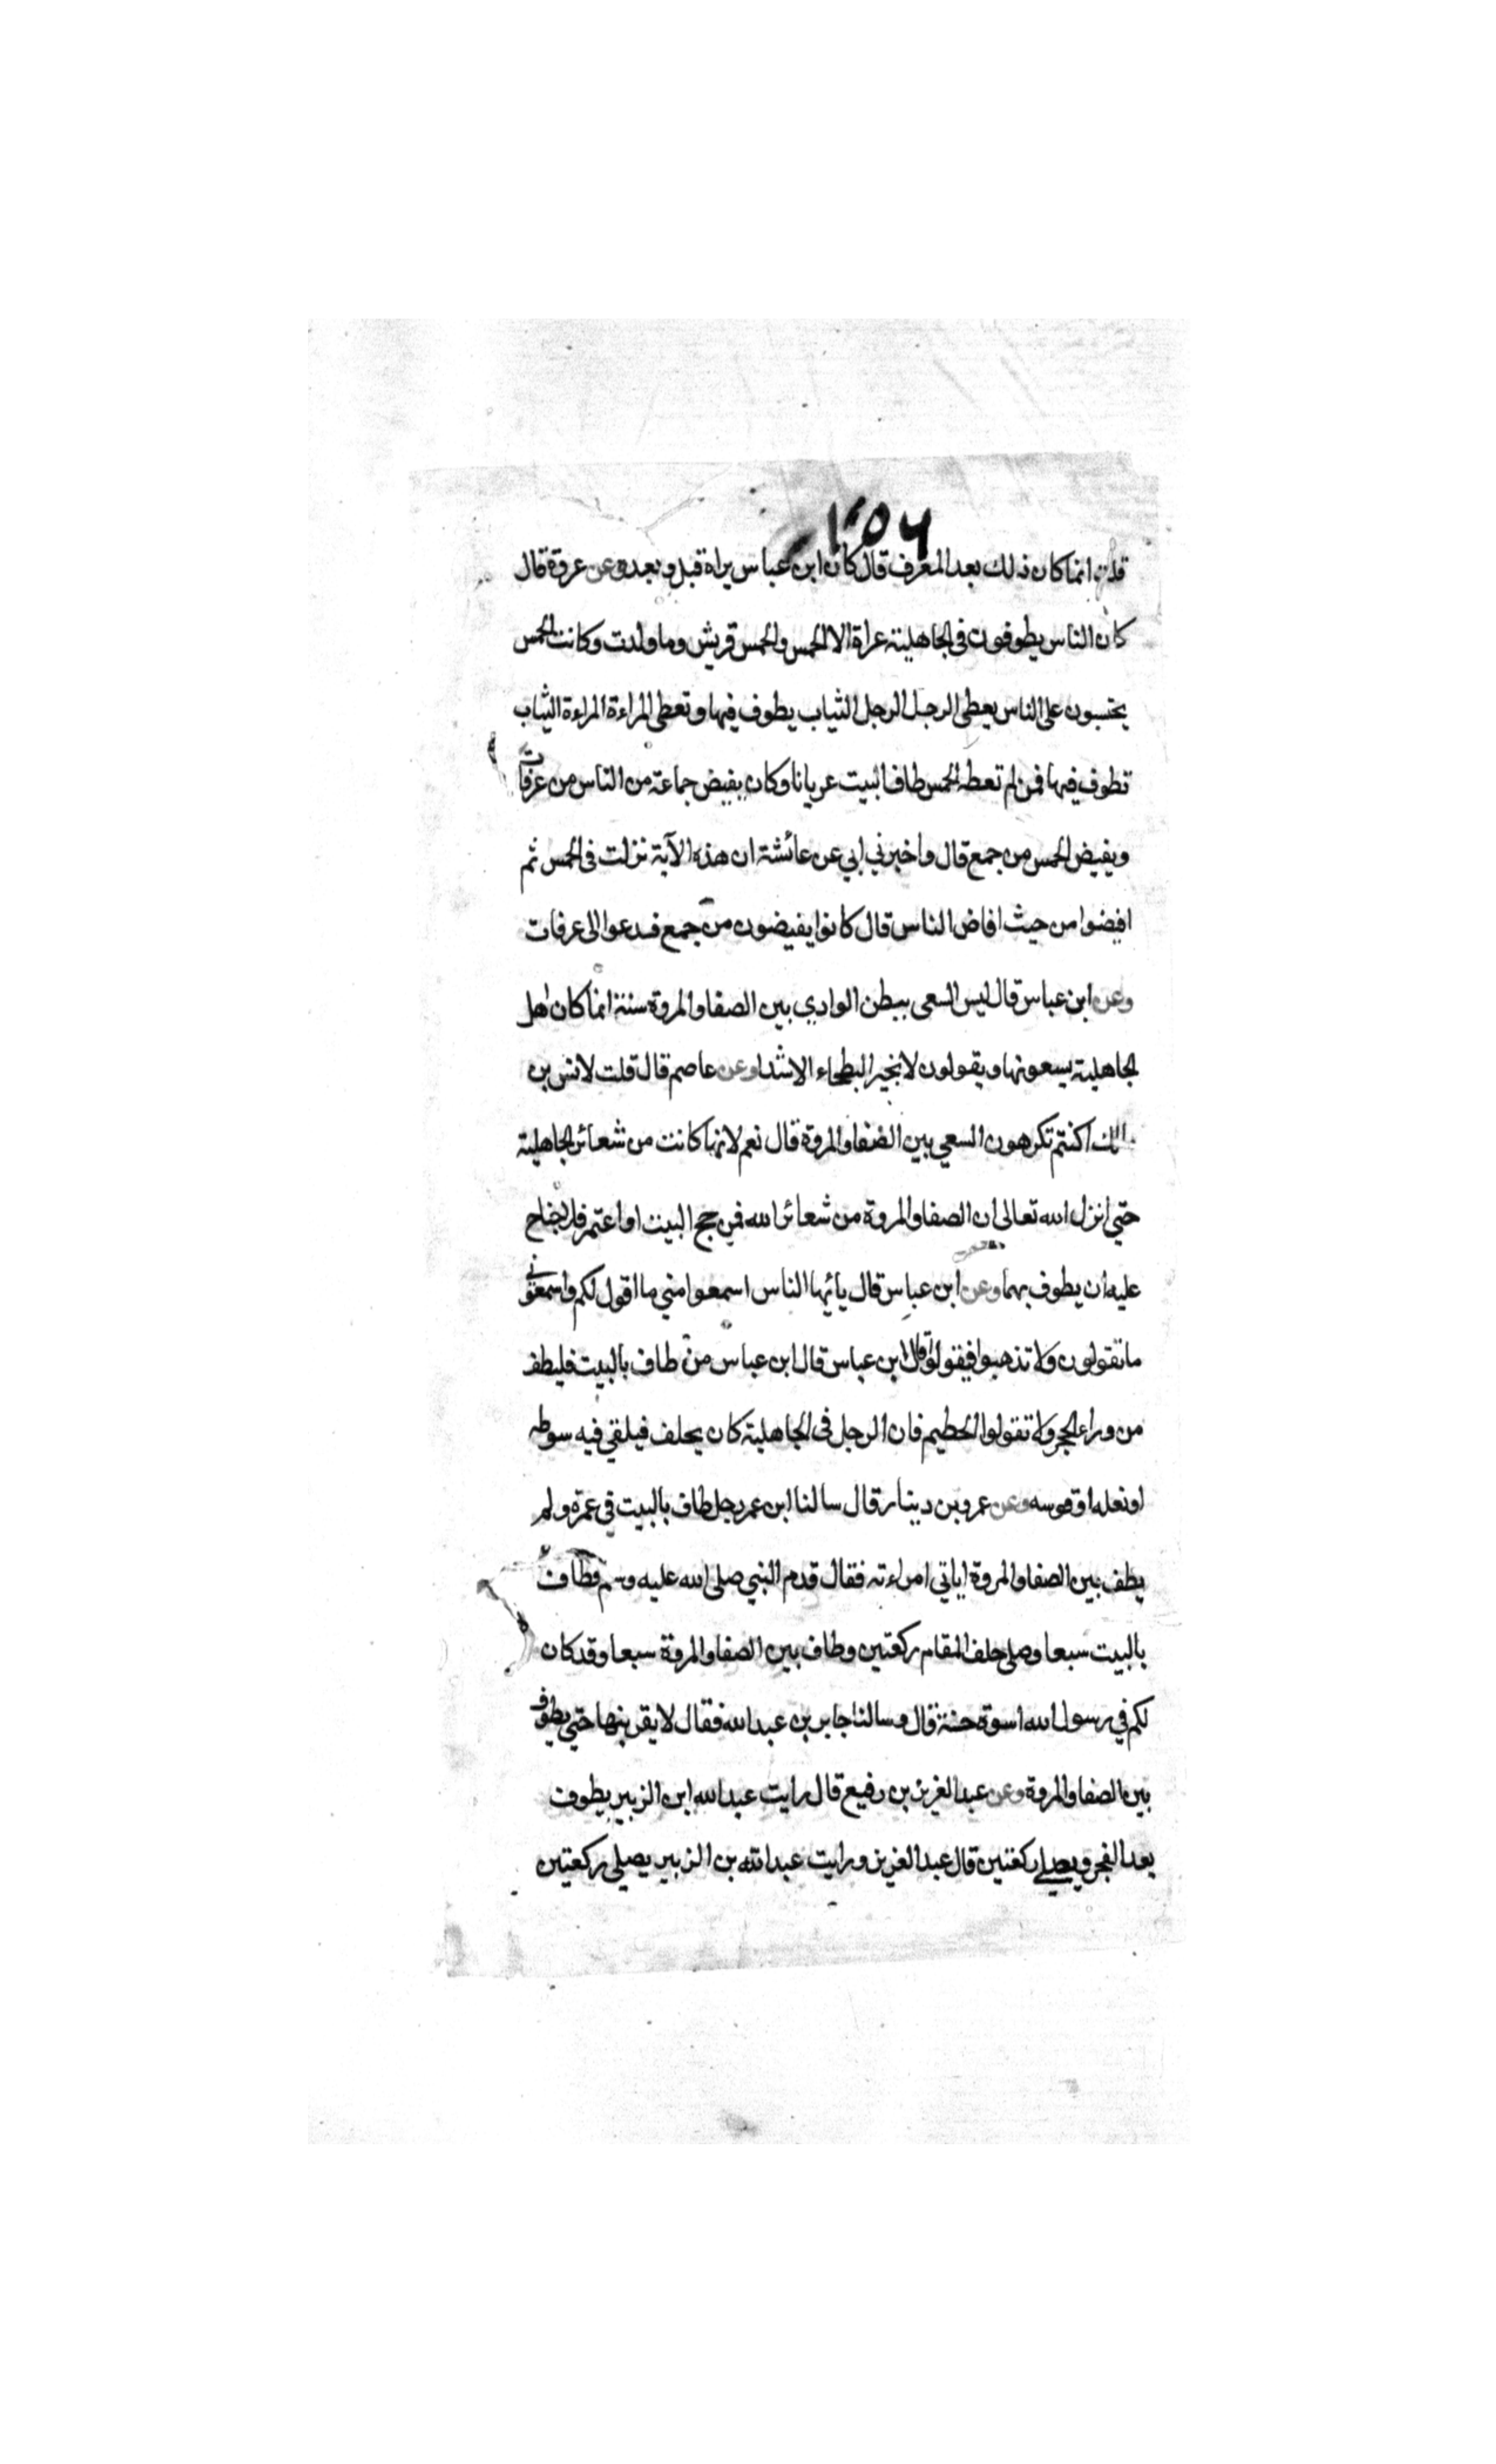 ١٠٥٦
قلت انما كان ذلك بعد المعرف قال كان ابن عباس يراه قبل وبعده وعن عروة قال
كان الناس يطوفون فى الجاهلية عراة الا الحمس والحمس قريش وما ولدت وكانت الحمس
يحتسبون على الناس يعطى الرجل الرجل الثياب يطوف فيها وتعطى المراءة المراءة الثياب
تطوف فيها فمن لم تعطه الحمس طاف البيت عريانا وكان يفيض جماعة من الناس من عرفات
ويفيض الحمس من جمع قال واخبرني ابي عن عائشة ان هذه الآية نزلت فى الحمس ثم
افيضوا من حيث افاض الناس قال كانوا يفيضون من جمع فدعوا الى عرفات
وعن ابن عباس قال ليس السعى ببطن الوادي بين الصفا والمروة سنة انما كان اهل
الجاهلية يسعونها ويقولون لا نجيز البطحاء الا شدا وعن عاصم قال قلت لانس بن
مالك اكنتم تكرهون السعي بين الصفا والمروة قال نعم لانها كانت من شعائر الجاهلية
حتي انزل الله تعالى ان الصفا والمروة من شعائر الله فمن حج البيت او اعتمر فلا جناح
عليه ان يطوف بهما وعن ابن عباس قال يائيها الناس اسمعوا مني ما اقول لكم واسمعوني
ما تقولون ولا تذهبوا فيقولوا قال ابن عباس قال ابن عباس من طاف بالبيت فليطف
من وراء الحجر ولا تقولوا الحطيم فان الرجل فى الجاهلية كان يحلف فيلقي فيه سوطه
او نعله او قوسه وعن عمرو بن دينار قال سالنا ابن عمر رجل طاف بالبيت في عمرة ولم
يطف بين الصفا والمروة اياتي امراءته فقال قدم النبي صلى الله عليه وسلم فطاف
بالبيت سبعا وصلى خلف المقام ركعتين وطاف بين الصفا والمروة سبعا وقد كان
لكم في رسول الله اسوة حسنة قال وسالنا جابر بن عبد الله فقال لا يقربنها حتي يطوف
بين الصفا والمروة وعن عبد العزيز بن رفيع قال رايت عبد الله ابن الزبير يطوف
بعد الفجر ويصلى ركعتين قال عبد العزيز ورايت عبد الله بن الزبير يصلي ركعتين